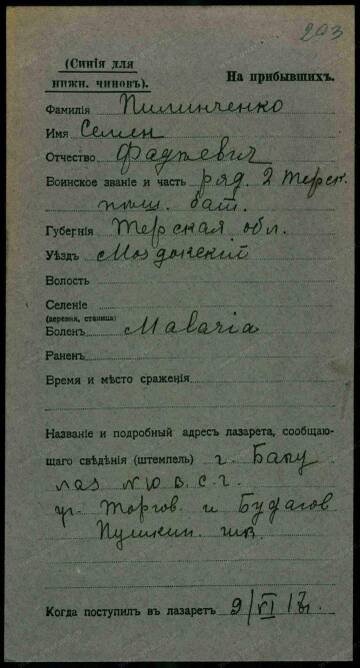 203
(Синія для
нижн. чиновъ).
На прибывшихъ.
Фамилія Пилинченко
Имя Семен
Отчество Фадѣевич
Воинское званіе и часть ряд. 2 Терск.
бат.
Губернія Терская обл.
Уѣздъ Моздокский
Волость
Селеніе
(деревня, станица)
Боленъ Малярія
Раненъ
Время и мѣсто сраженія
Названіе и подробный адресъ лазарета, сообщаю-
щаго свѣдѣнія (штемпель) г. Баку
лаз № Ю. В. С. Г.
уг. Торгов. и Будагов
Пушкин. шк.
Когда поступилъ въ лазаретъ 9/VI 17г.